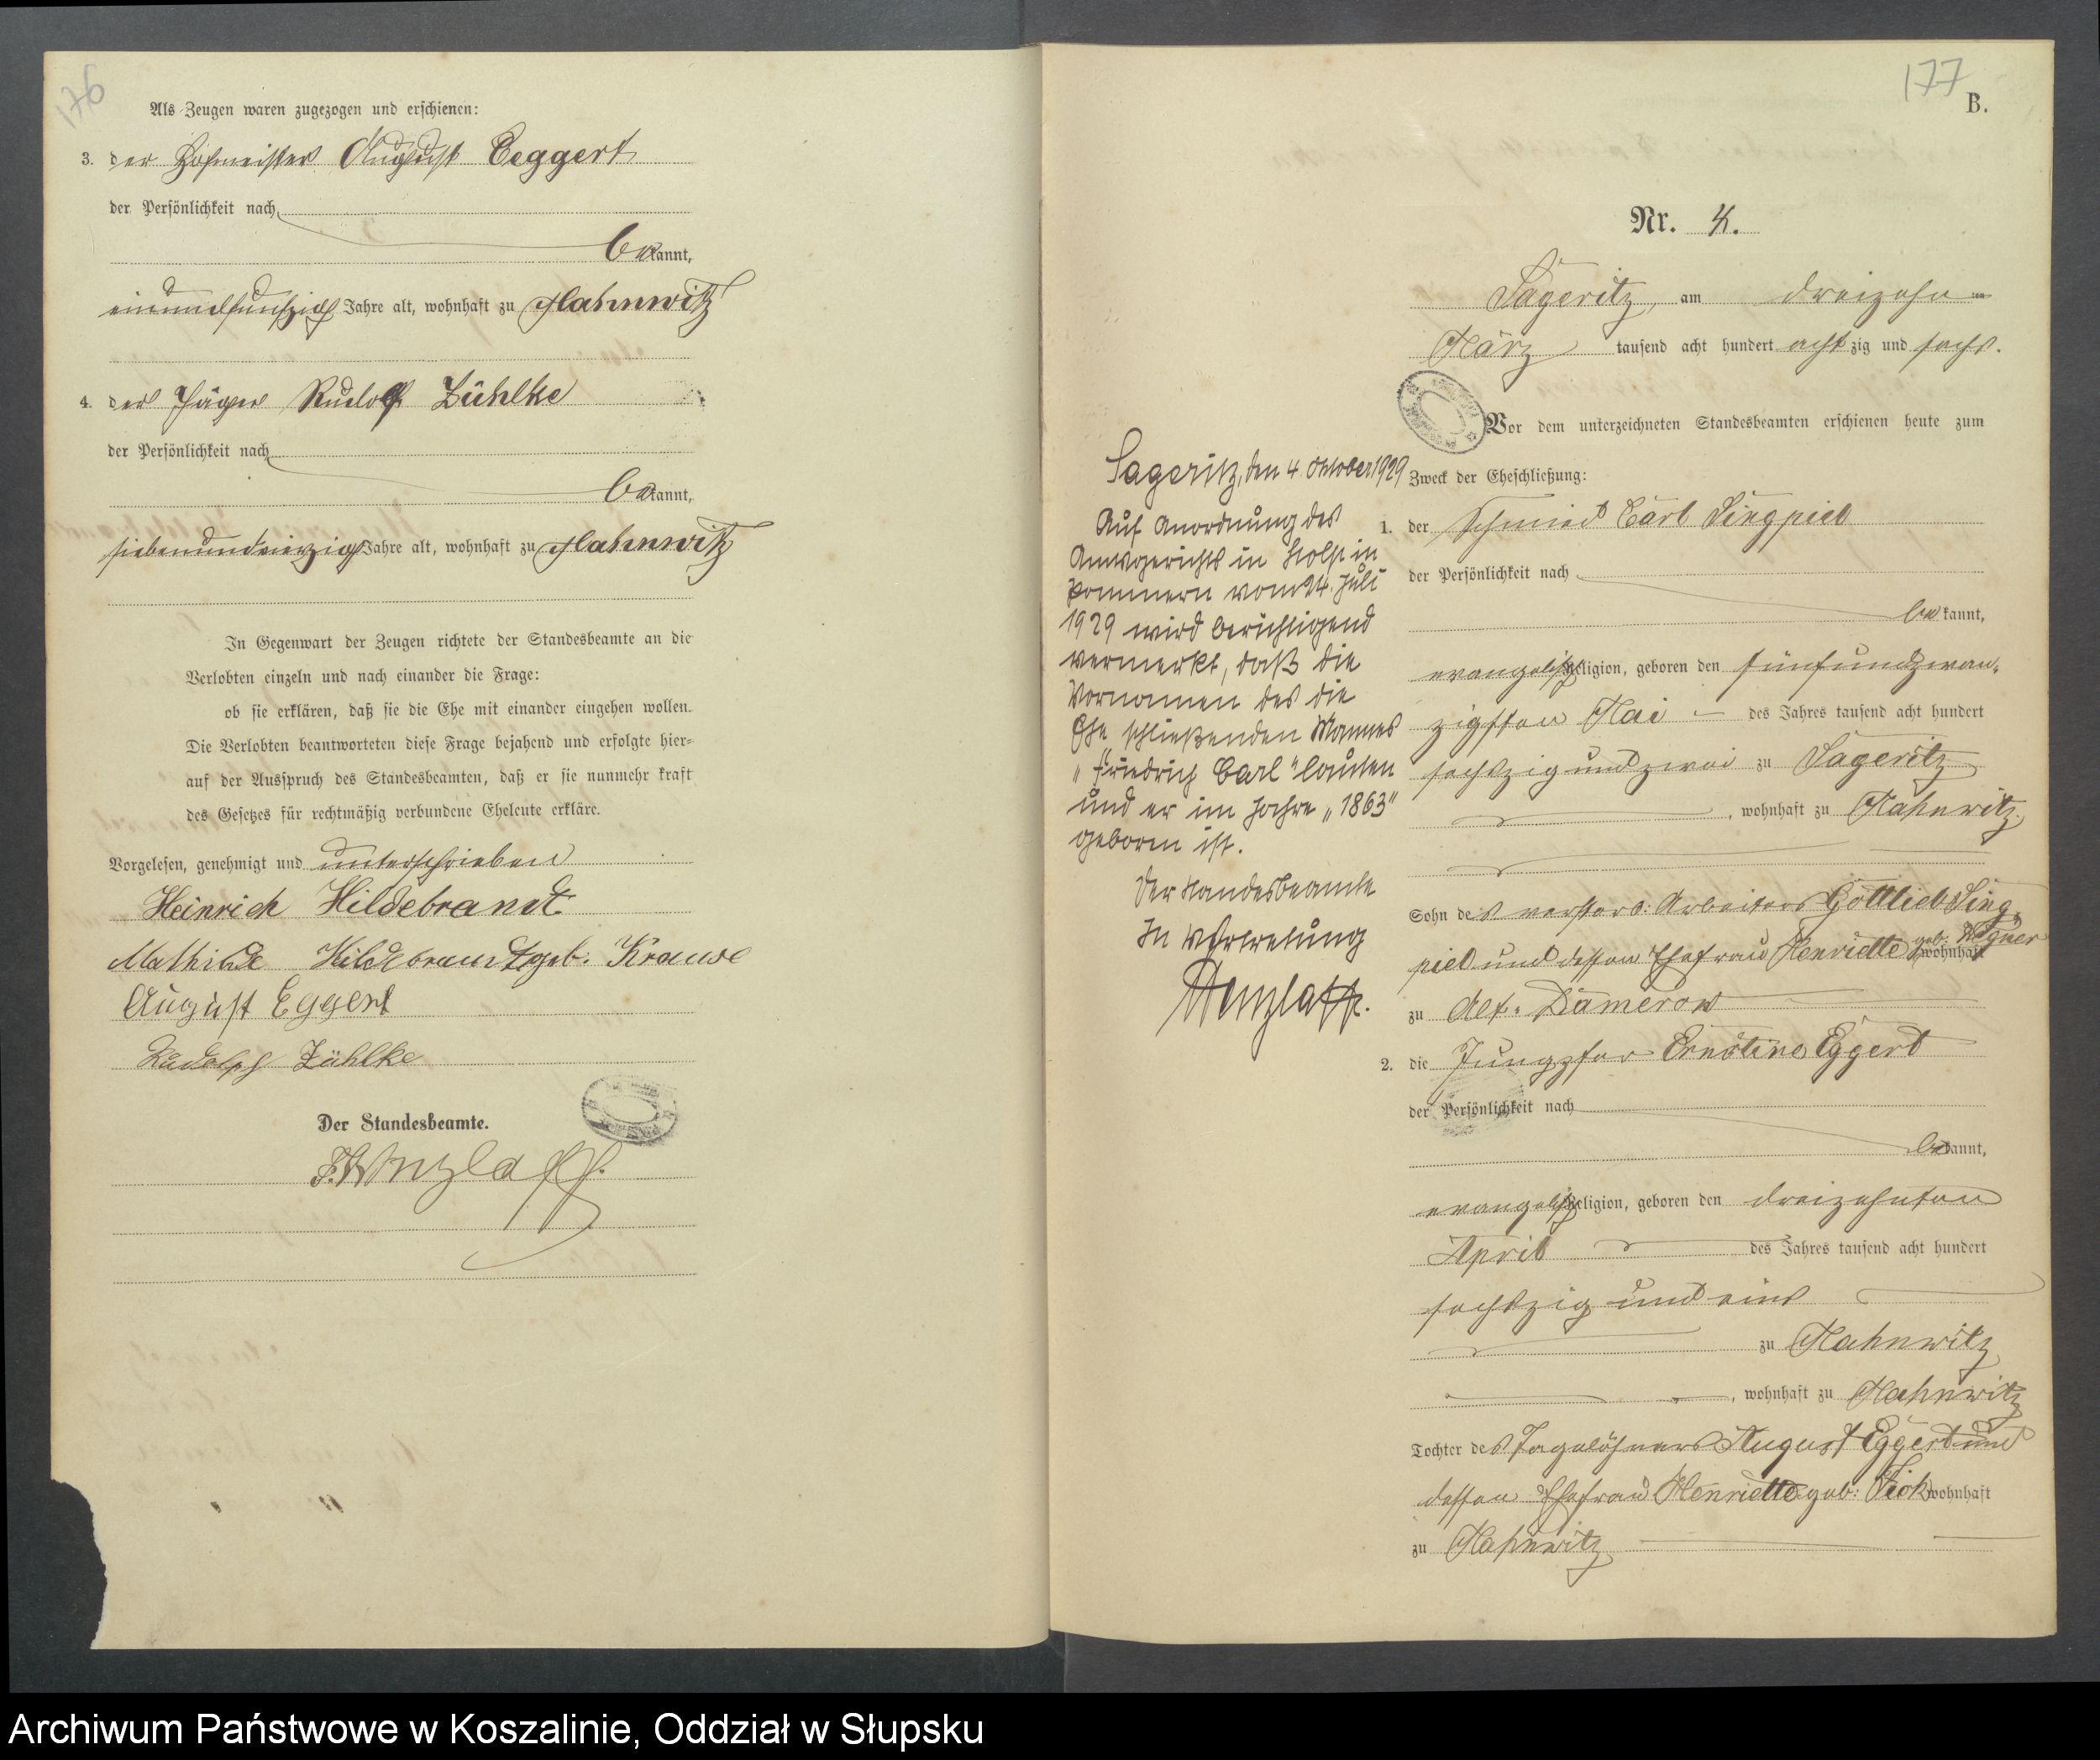 176
Als Zeugen waren zugezogen und erschienen:
3. der Hofmeister August Eeggert
der Persönlichkeit nach
bekannt,
einundfunfzig Jahre alt, wohnhaft zu Mahnwitz
4. der Jäger Rudolf Zühlke
der Persönlichkeit nach
bekannt,
siebenundvierzig Jahre alt, wohnhaft zu Mahnwitz
In Gegenwart der Zeugen richtete der Standesbeamte an die
Verlobten einzeln und nach einander die Frage:
ob sie erklären, daß sie die Ehe mit einander eingehen wollen.
Die Verlobten beantworteten diese Frage bejahend und erfolgte hier=
auf der Ausspruch des Standesbeamten, daß er sie nunmehr kraft
des Gesetzes für rechtmäßig verbundene Eheleute erkläre.
Vorgelesen, genehmigt und unterschrieben
Heinrich Hildebrandt
Mathilde Hildebrandt geb. Krause
August Eggert
Rudolph Zühlke
Der Standesbeamte.
F. Wenzlaff.
177
B.
Nr. 4.
Sageritz, am dreizehn ten
März tausend acht hundert achtzig und sechs.
Vor dem unterzeichneten Standesbeamten erschienen heute zum
Zweck der Eheschließung:
1. der Schmied Carl Singpiel
der Persönlichkeit nach
bekannt,
evangelisch Religion, geboren den fünfundzwan=
zigsten Mai des Jahres tausend acht hundert
sechszig und zwei zu Sageritz
, wohnhaft zu Mahnwitz
Sohn des verstorb: Arbeiters Gottlieb Sing=
piel und dessen Ehefrau Henriette geb: wohnhaft
zu Alt=Damerow
2. die Jungfer Ernstine Eggert
der Persönlichkeit nach
bekannt,
evangelisch Religion, geboren den dreizehnten
April des Jahres tausend acht hundert
sechszig und eins
zu Mahnwitz
, wohnhaft zu Mahnwitz
Tochter des Tagelöhners August Eggert und
dessen Ehefrau Henriette geb: Fick wohnhaft
zu Mahnwitz
Sageritz, den 4 Oktober 1929
Auf Anordnung des
Amtsgerichts in Stolp in
Pommern vom 24. Juli
1929 wird berichtigend
vermerkt, daß die
Vornamen des die
Ehe schließenden Mannes
„Friedrich Carl" lauten
und er im Jahre „1863"
geboren ist.
Der Standesbeamte
In Vertretung
Wenzlaff.
Archiwum Państwowe w Koszalinie, Oddział w Słupsku